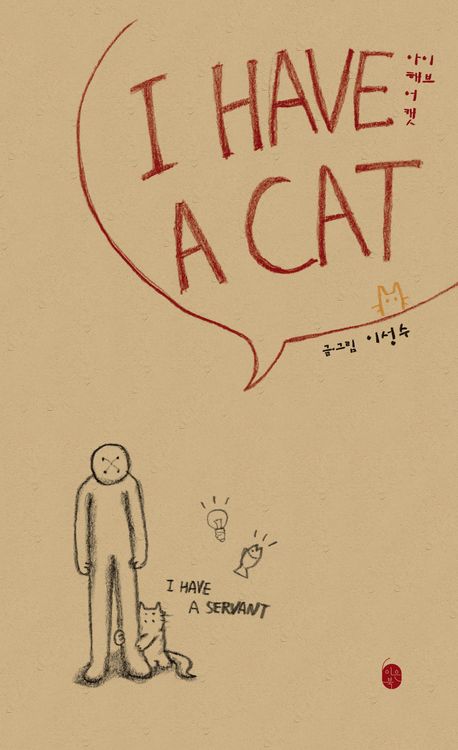 I HAVE
A CAT
아이
해브
어
캣
글·그림 이성수
I HAVE
A SERVANT
이은북